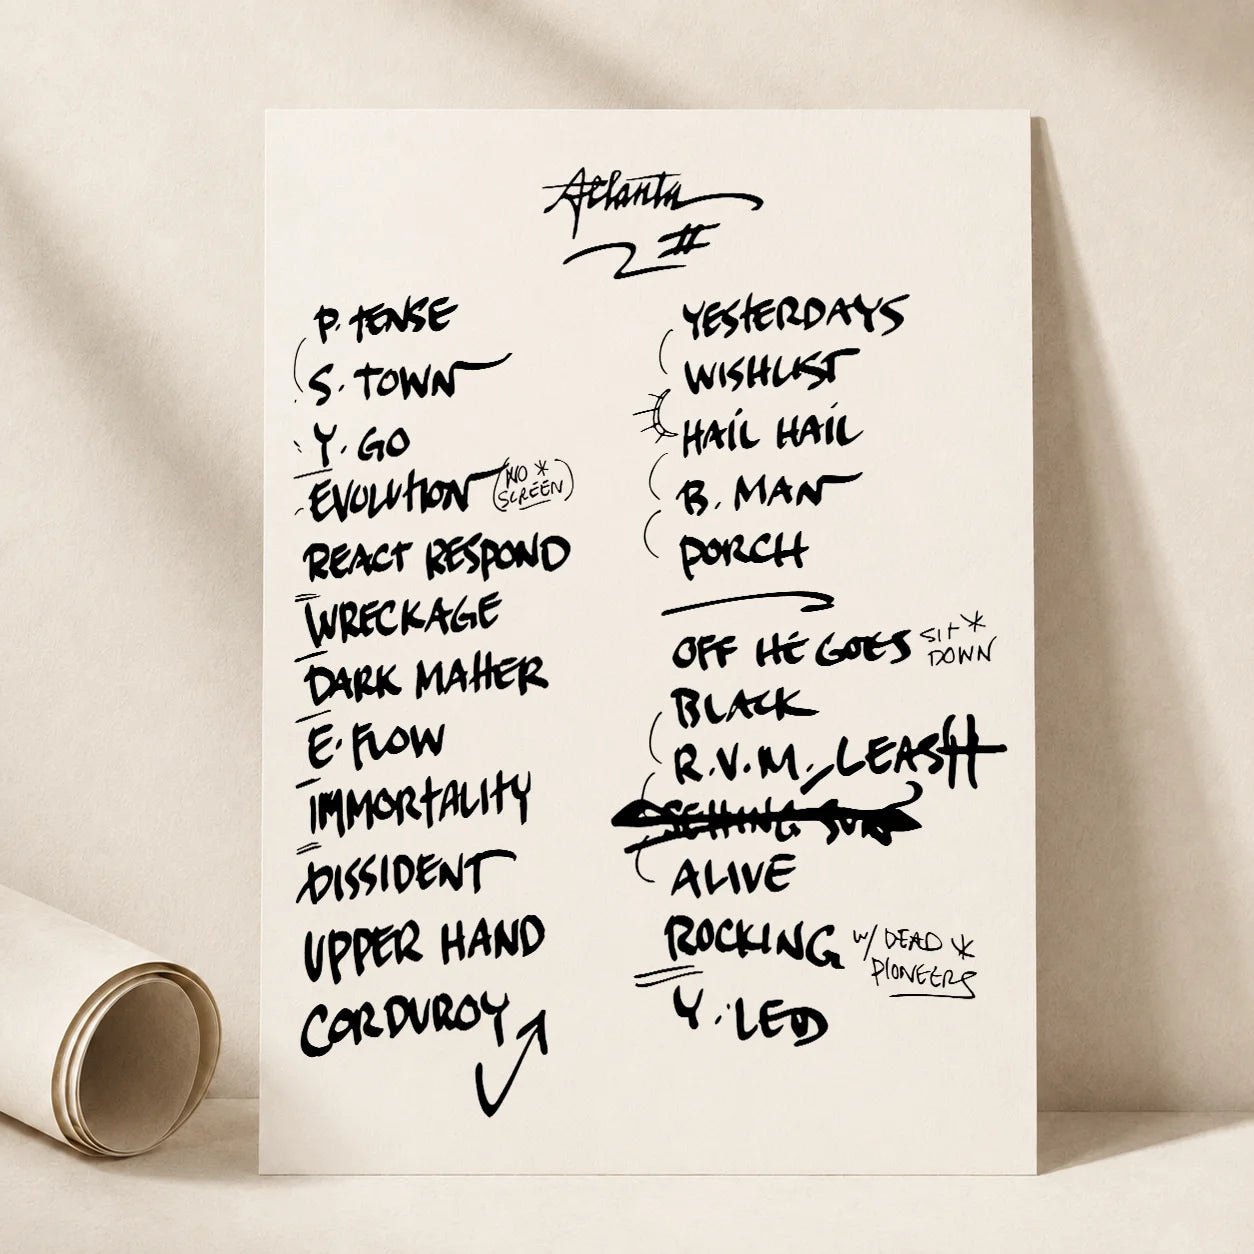 Atlanta
II
P. TENSE
S. TOWN
Y. GO
EVOLUTION (NO *
SCREEN)
REACT RESPOND
WRECKAGE
DARK MATTER
E. FLOW
IMMORTALITY
DISSIDENT
UPPER HAND
CORDUROY
YESTERDAYS
WISHLIST
HAIL HAIL
B. MAN
PORCH
OFF HE GOES SIT *
DOWN
BLACK
R.V.M. LEASH
SETTING SUN
ALIVE
ROCKING W/ DEAD *
PIONEERS
Y. LED